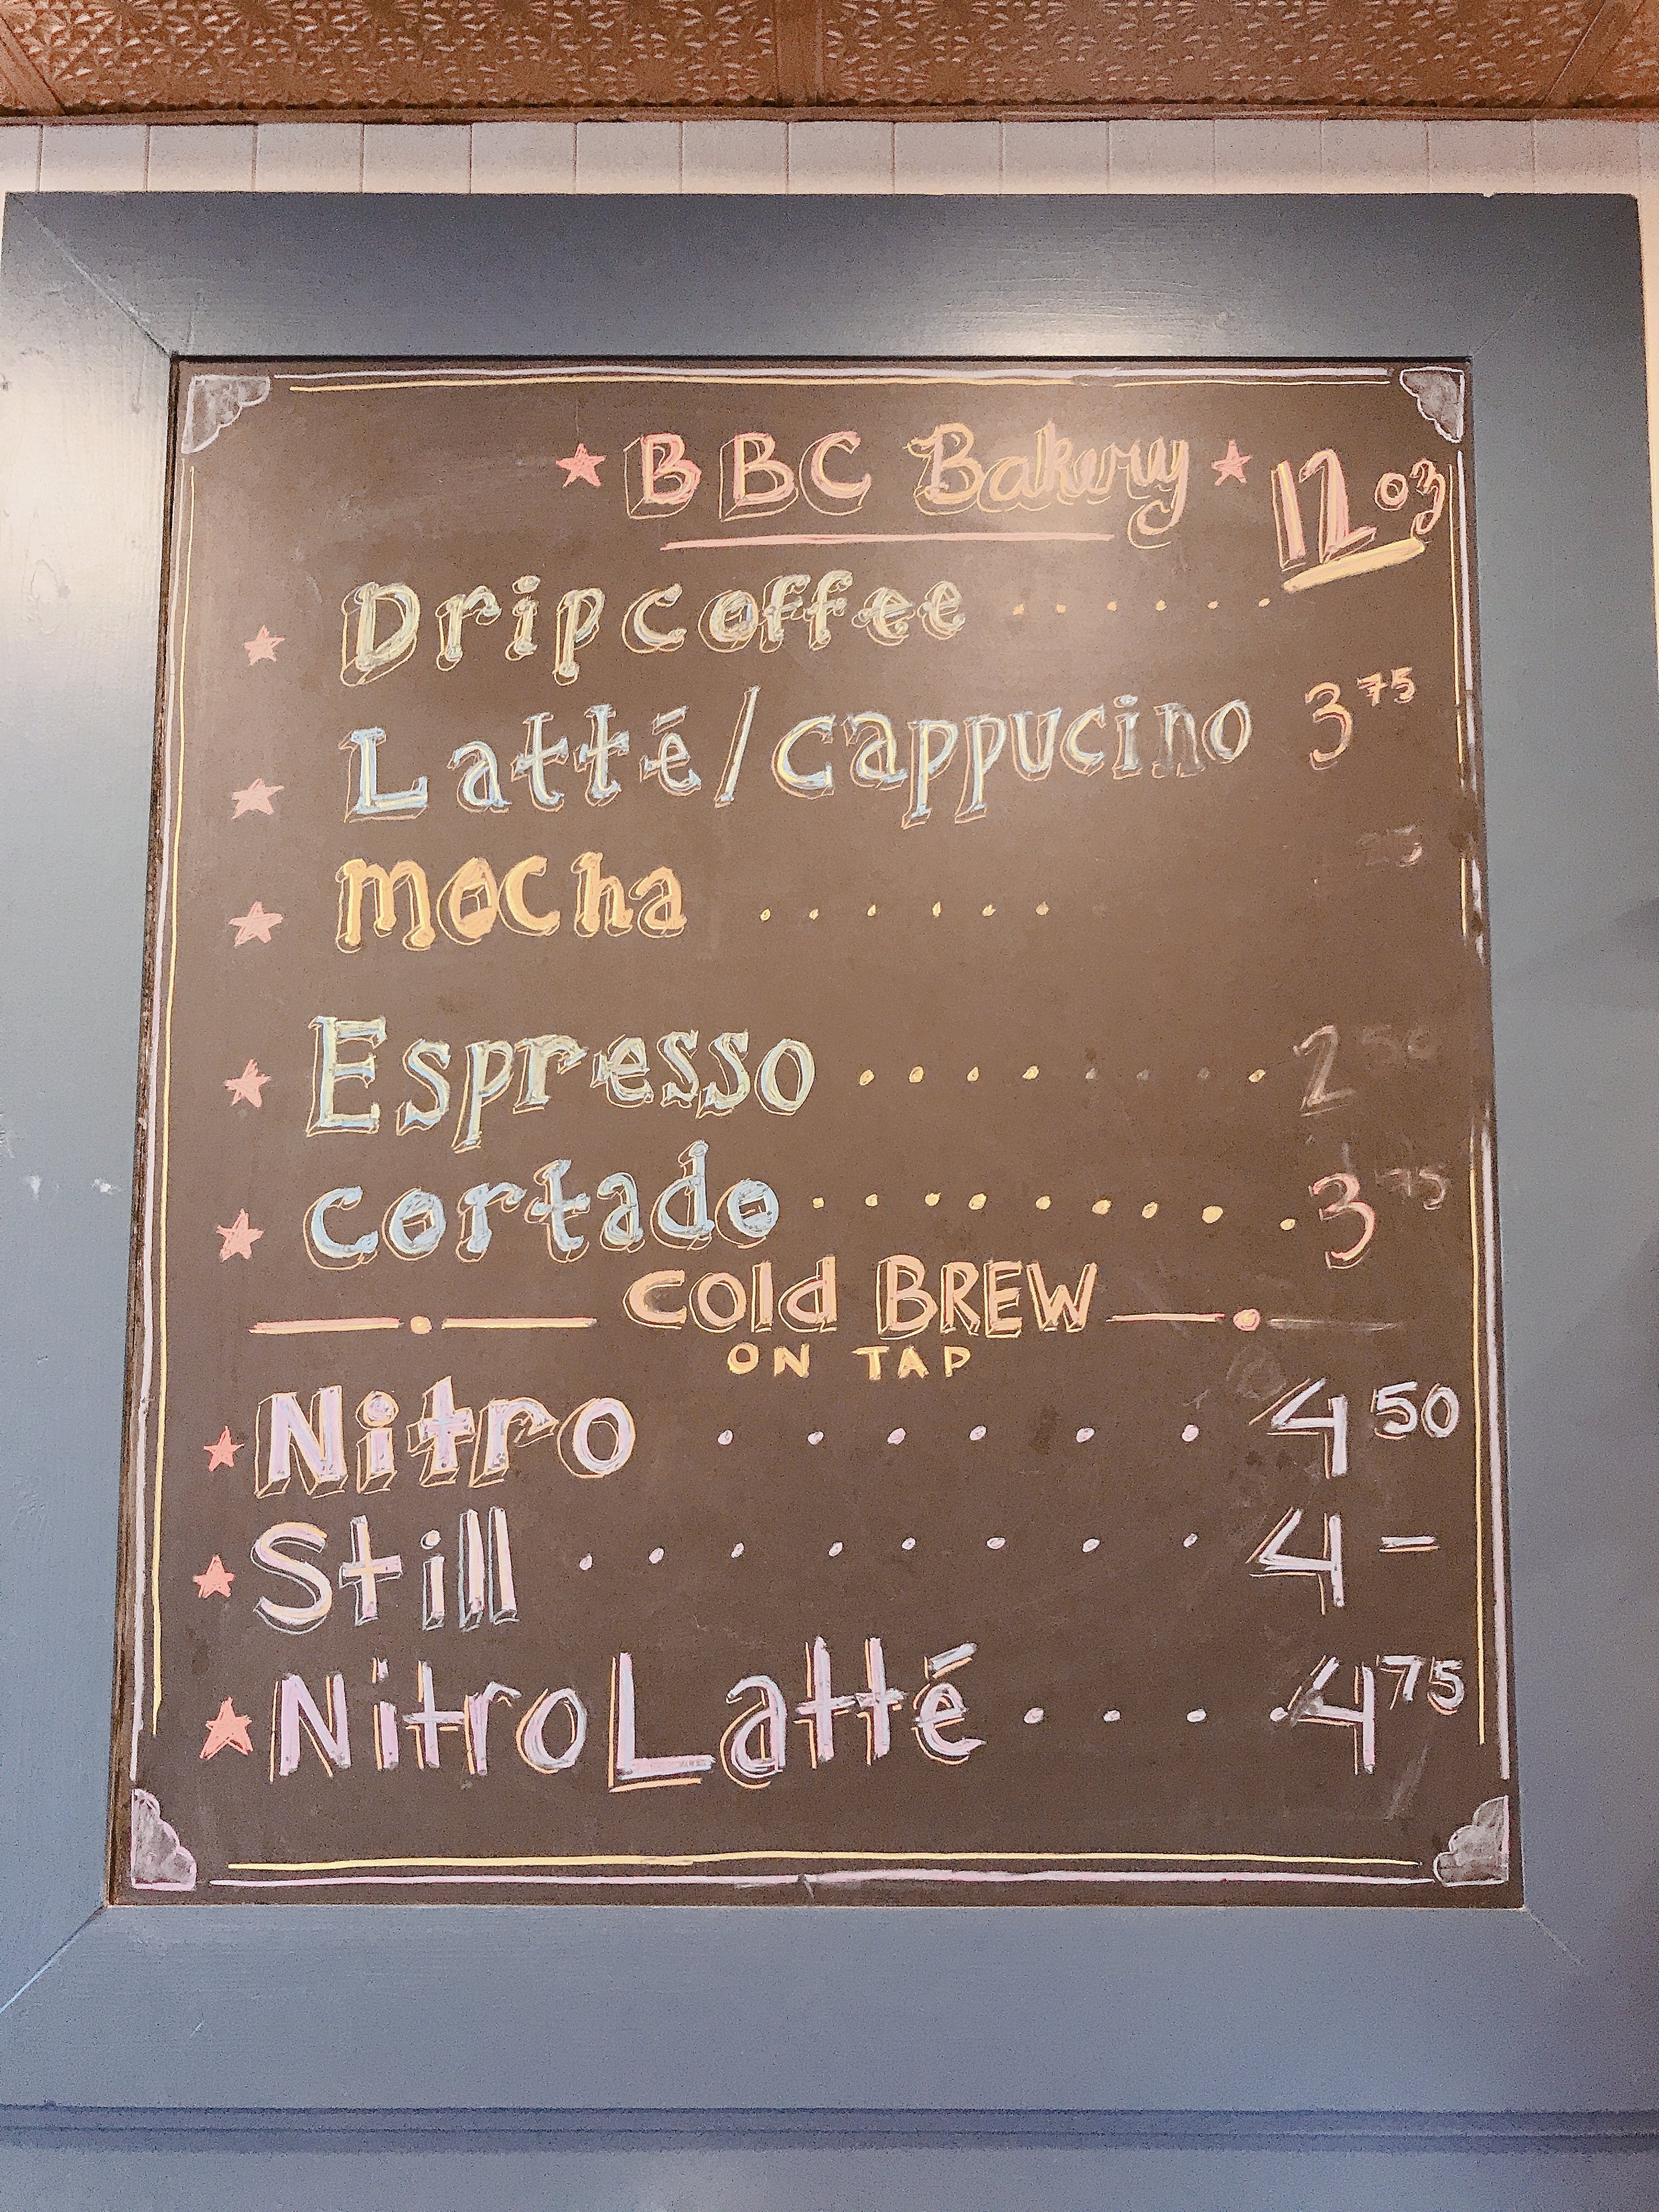 BBC Bakery 12 oz
Dripcoffee ......
Latté/cappucino 3 75
mocha ...... 25
Espresso ......... 2 50
cortado ......... 3 75
cold BREW
ON TAP
Nitro ...... 4 50
Still ........ 4 —
Nitro Latté .... 4 75